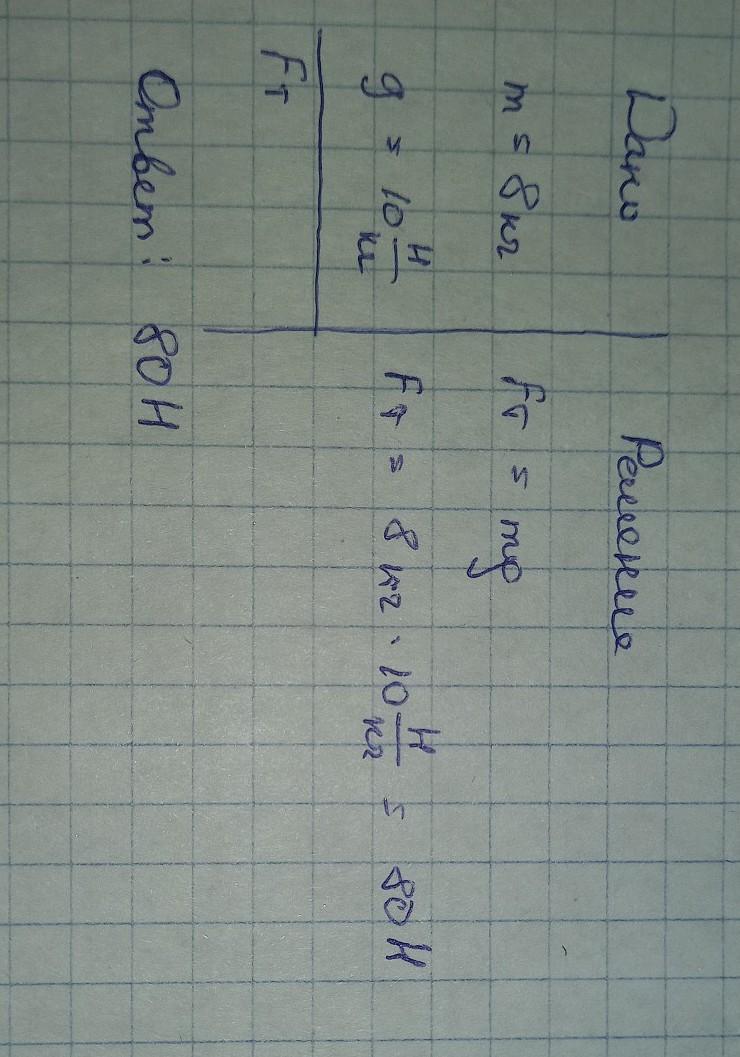 Дано
m = 8 кг
g = 10 Н/кг
Fт
Решение
Fт = mg
Fт = 8 кг · 10 Н/кг = 80 Н
Ответ: 80 Н